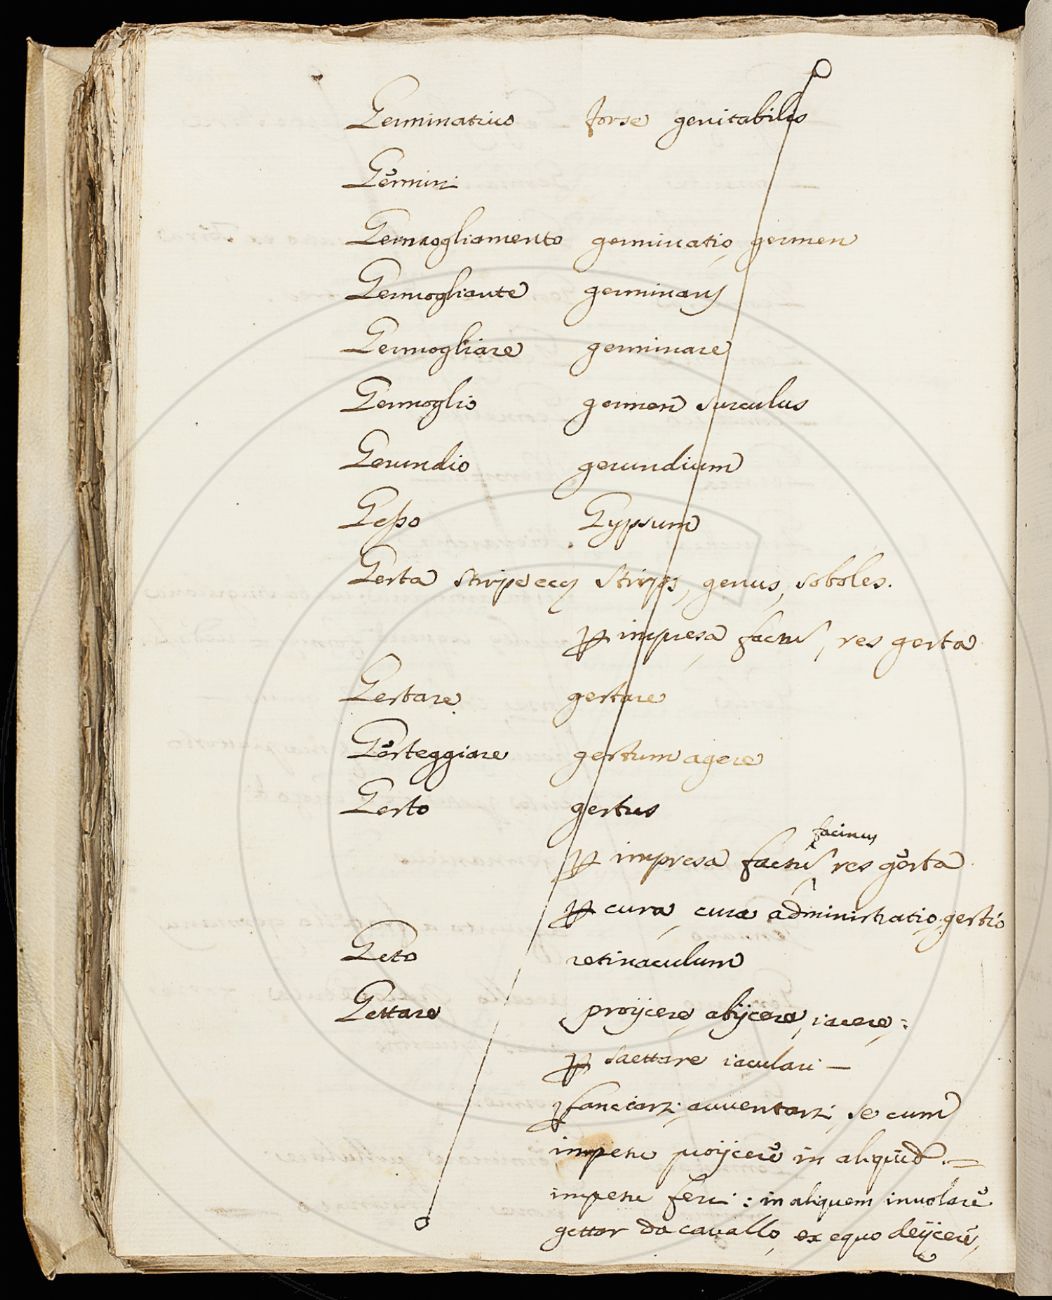 Germinativo forse genitabilis
Gèrmini
Germogliamento germinatio, germen
Germogliante germinans
Germogliare germinare
Germoglio germen surculus
Gerundio gerundium
Gesso Gypsum
Gesta stirpe stirps, genus, soboles.
impresa factus, res gesta
Gestare gestare
Gesteggiare gestum agere
Gesto gestus
facinus
impresa factus res gesta
cura, cura administratio, gestio
Geto retinaculum
Gettare proijcere, abijcere, iacere;
saettare iaculari —
avventarsi, se cum
impetu proijcere in aliquid. —
impetu feri : in aliquem involare
gettar da cavallo, ex equo deijcere,